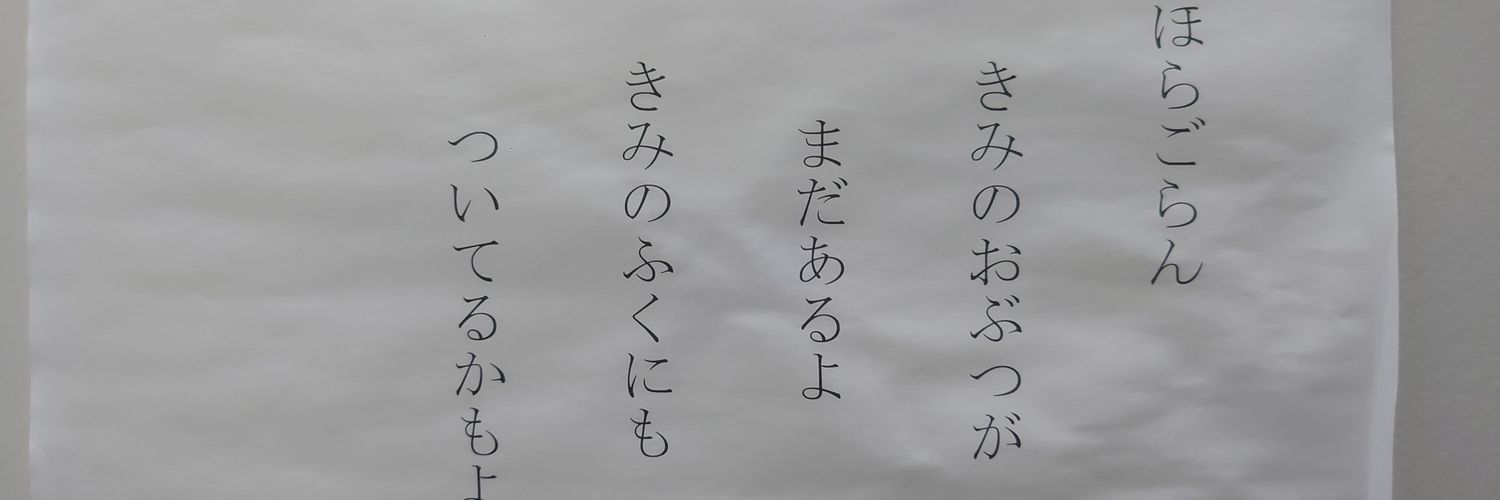 ほらごらん
きみのおぶつが
まだあるよ
きみのふくにも
ついてるかもよ